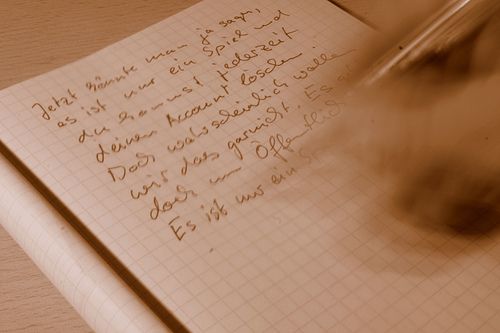 Jetzt könnte man ja sagen,
es ist nur ein Spiel und
du kannst jederzeit
deinen Account löschen.
Doch wahrscheinlich wollen
wir das garnicht. Es
doch um Öffentlich
Es ist nur ein